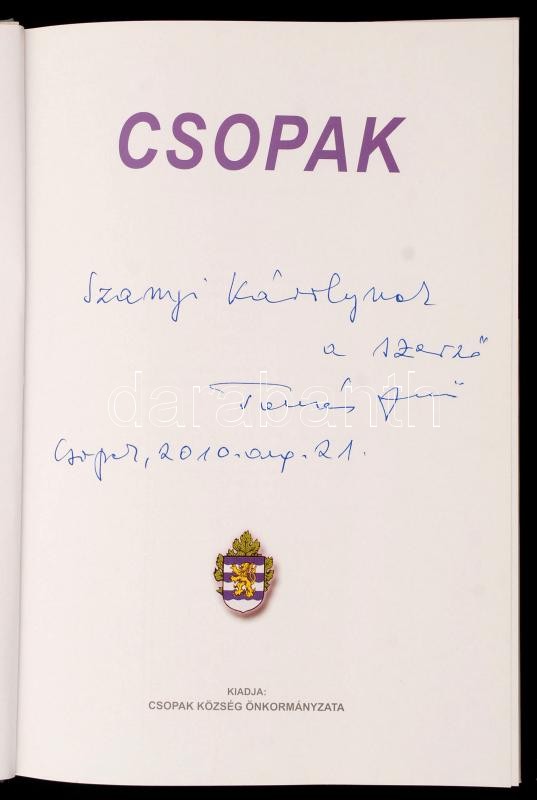 CSOPAK
Szanyi Károlynak
a szerző
Tamás
Csopak, 2010. aug. 21.
darabanth
KIADJA:
CSOPAK KÖZSÉG ÖNKORMÁNYZATA